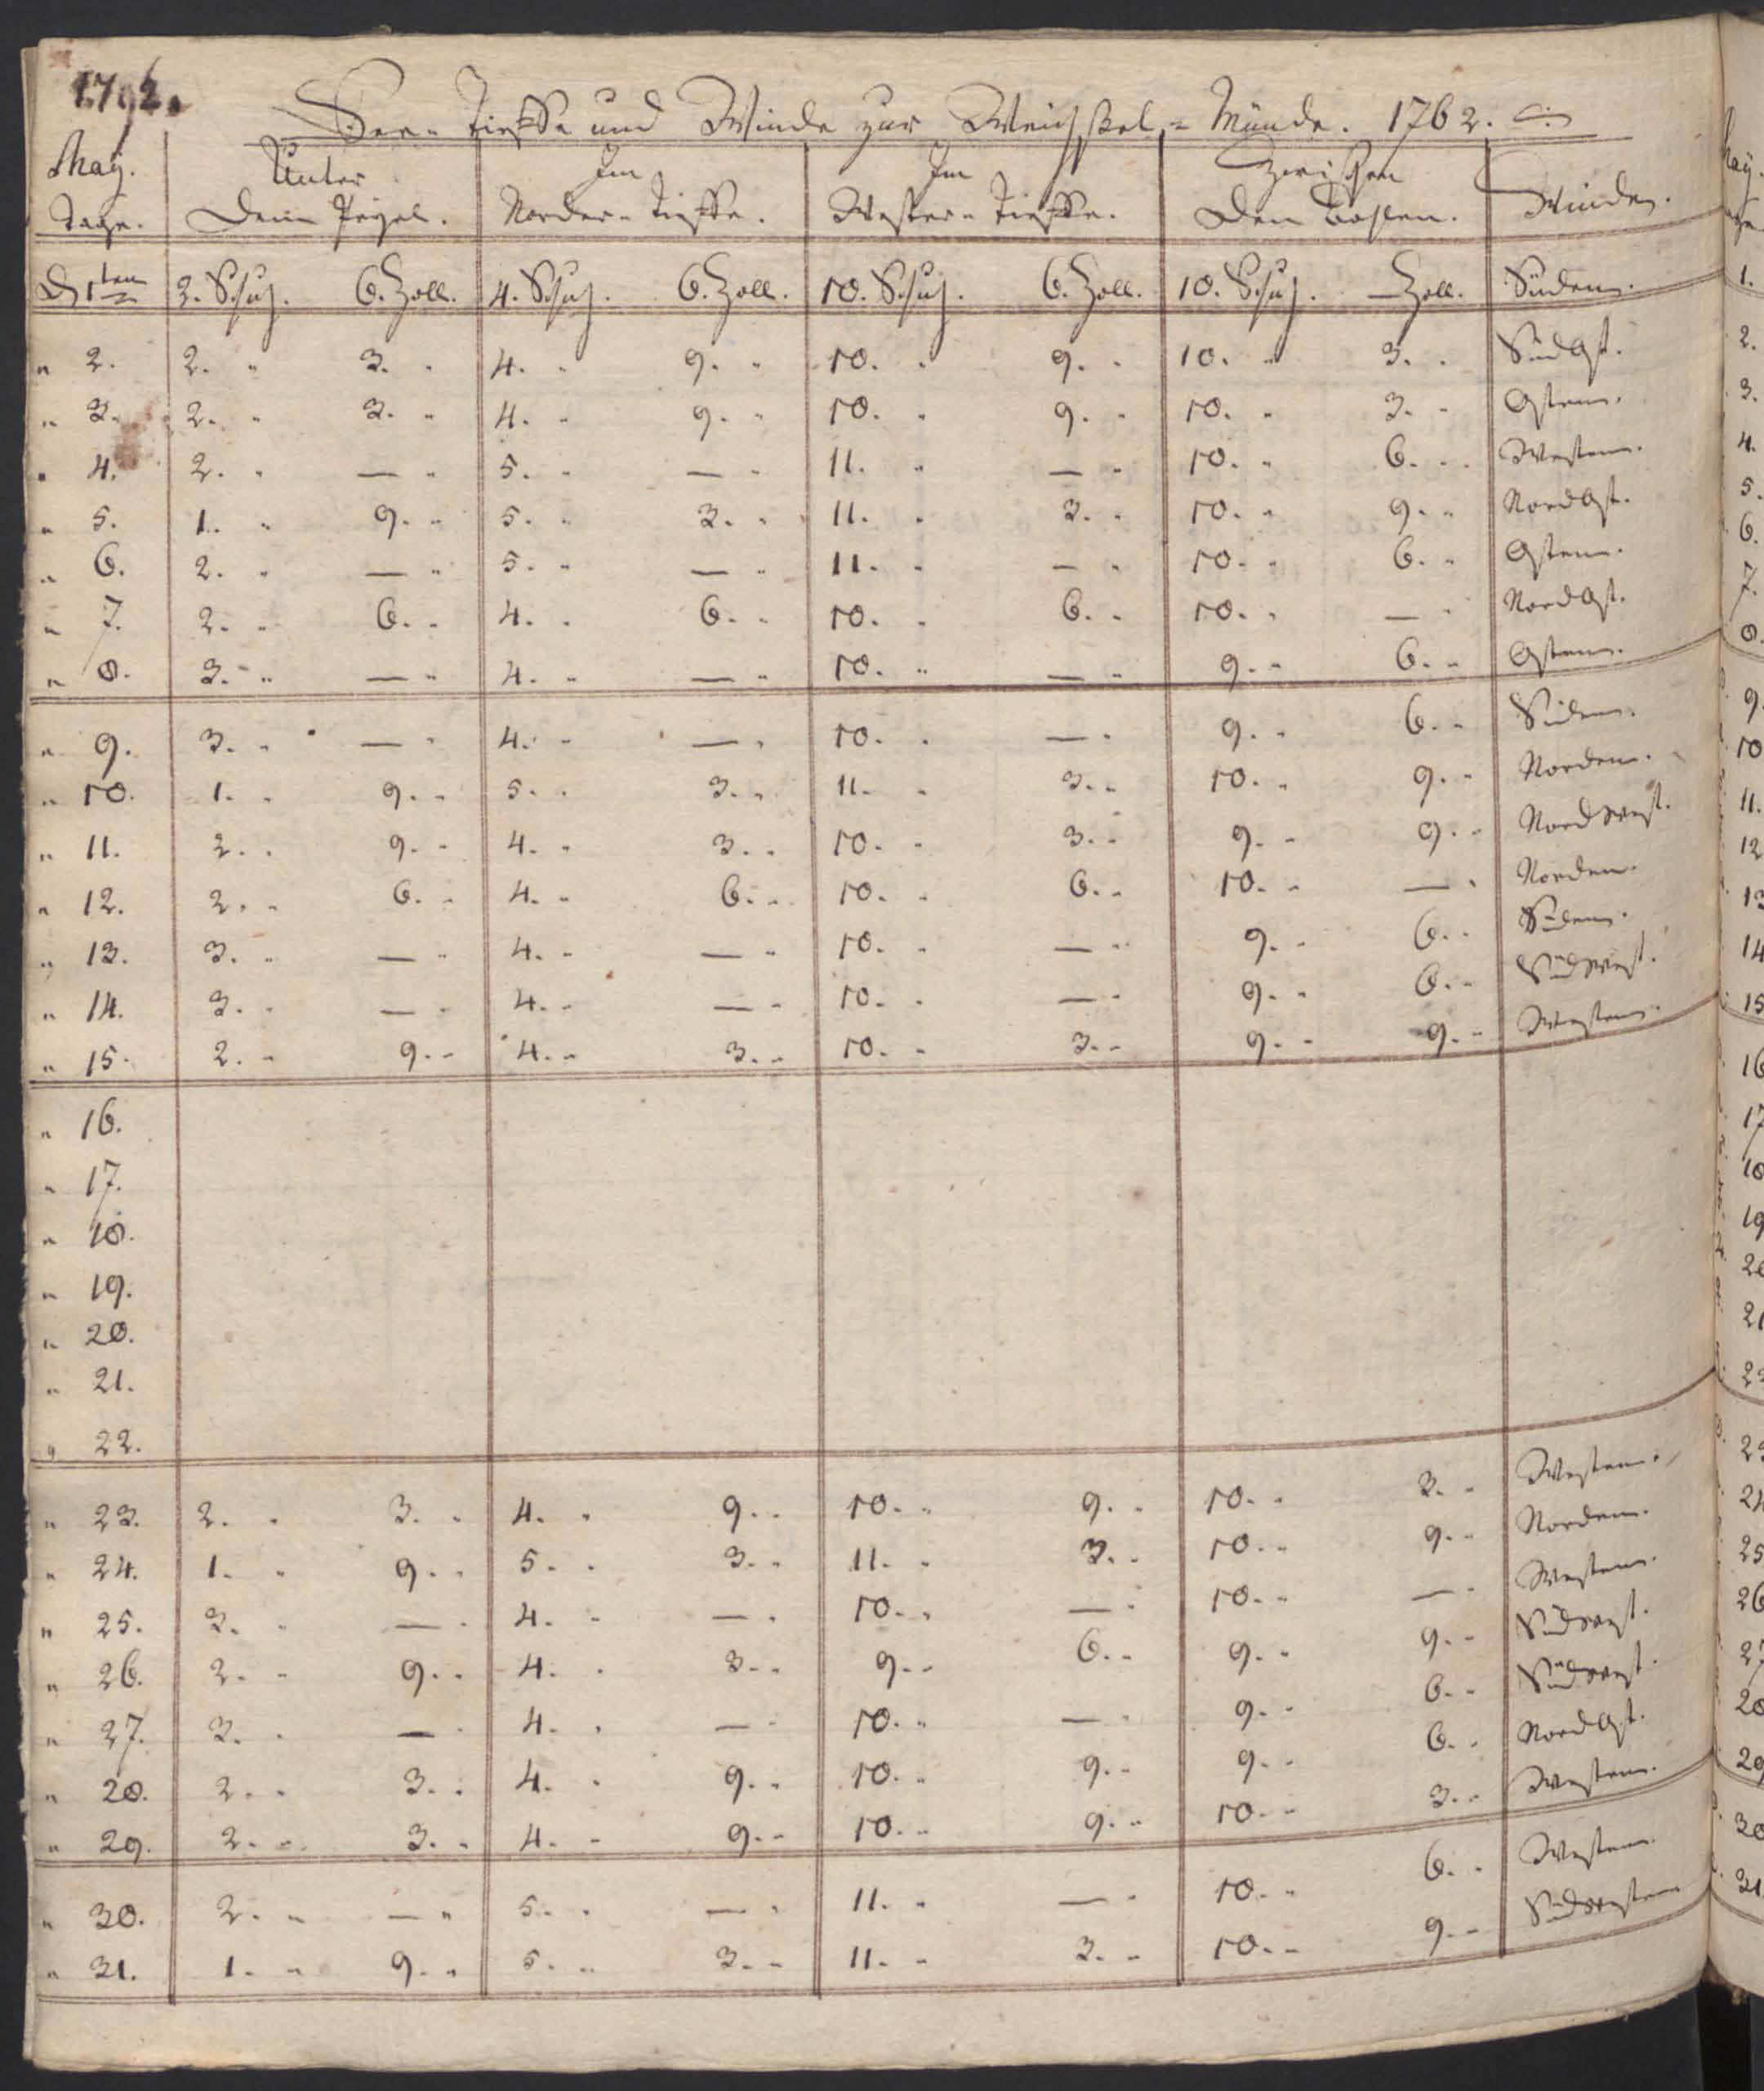 1762.
See- Tieffe und Winde zur Weichssel = Münde. 1762.
May. Unter Im Im Zwischen
Tage. Dem Pegel. Norder- Tieffe. Wester- Tieffe. Den Bohlen. Winde.
D 1ten 2. Schuh. 6. Zoll. 4. Schuh. 6. Zoll. 10. Schuh. 6. Zoll. 10. Schuh. — Zoll. Süden.
" 2. 2. " 3. " 4. " 9. " 10. " 9. " 10. " 3. " SüdOst.
" 3. 2. " 3. " 4. " 9. " 10. " 9. " 10. " 3. " Osten.
" 4. 2. " — " 5. " — " 11. " — " 10. " 6. " Westen.
" 5. 1. " 9. " 5. " 3. " 11. " 3. " 10. " 9. " NordOst.
" 6. 2. " — " 5. " — " 11. " — " 10. " 6. " Osten.
" 7. 2. " 6. " 4. " 6. " 10. " 6. " 10. " — " NordOst.
" 8. 3. " — " 4. " — " 10. " — " 9. " 6. " Osten.
" 9. 3. " — " 4. " — " 10. " — " 9. " 6. " Süden.
" 10. 1. " 9. " 5. " 3. " 11. " 3. " 10. " 9. " Norden.
" 11. 2. " 9. " 4. " 3. " 10. " 3. " 9. " 9. " Nordwest.
" 12. 2. " 6. " 4. " 6. " 10. " 6. " 10. " — " Norden.
" 13. 3. " — " 4. " — " 10. " — " 9. " 6. " Süden.
" 14. 3. " — " 4. " — " 10. " — " 9. " 6. " Südwest.
" 15. 2. " 9. " 4. " 3. " 10. " 3. " 9. " 9. " Westen.
" 16.
" 17.
" 18.
" 19.
" 20.
" 21.
" 22.
" 23. 2. " 3. " 4. " 9. " 10. " 9. " 10. " 3. " Westen.
" 24. 1. " 9. " 5. " 3. " 11. " 3. " 10. " 9. " Norden.
" 25. 3. " — " 4. " — " 10. " — " 10. " — " Westen.
" 26. 2. " 9. " 4. " 3. " 9. " 6. " 9. " 9. " Südwest.
" 27. 3. " — " 4. " — " 10. " — " 9. " 6. " Südwest.
" 28. 2. " 3. " 4. " 9. " 10. " 9. " 9. " 6. " NordOst.
" 29. 2. " 3. " 4. " 9. " 10. " 9. " 10. " 3. " Westen.
" 30. 2. " — " 5. " — " 11. " — " 10. " 6. " Westen.
" 31. 1. " 9. " 5. " 3. " 11. " 3. " 10. " 9. " Südwesten